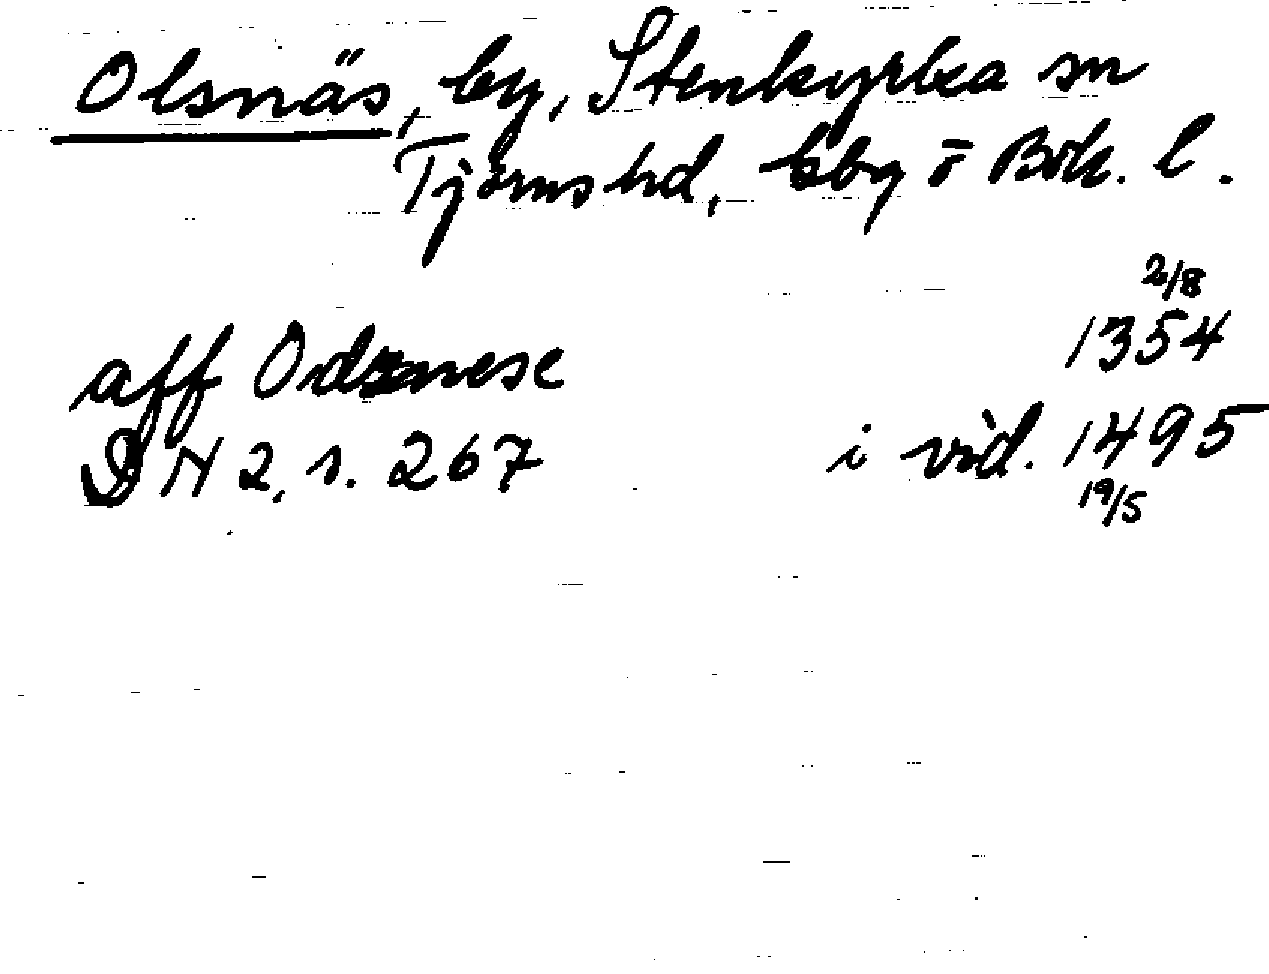 Olsnäs, by, Stenkyrka sn
Tjörns hd, Gbg o Boh. l.
2/8
aff Odzsnese 1354
DN 2, s. 267 i vid. 1495
19/5